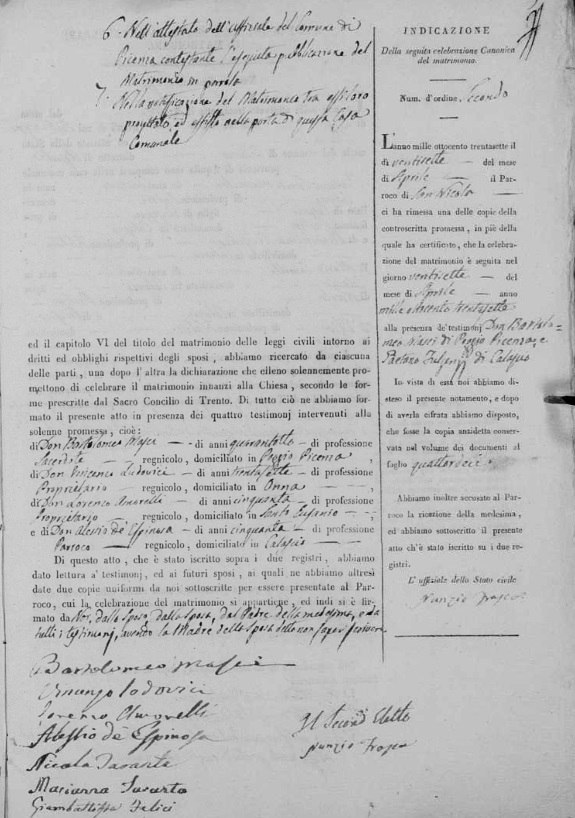 6. Nell'attestato dell'uffiziale del Comune di
Picenza contestante l'eseguita pubblicazione del
Matrimonio in parola
7. Nella notificazione del Matrimonio tra essi loro
progettato, ed affisso nella porta di questa Casa
Comunale
ed il capitolo VI del titolo del matrimonio delle leggi civili intorno ai
dritti ed obblighi rispettivi degli sposi, abbiamo ricercato da ciascuna
delle parti, una dopo l'altra la dichiarazione che elleno solennemente pro-
mettono di celebrare il matrimonio innanzi alla Chiesa, secondo le for-
me prescritte dal Sacro Concilio di Trento. Di tutto ciò ne abbiamo
formato il presente atto in presenza dei quattro testimonj intervenuti alla
solenne promessa, cioè:
di Don Bartolomeo Masci — di anni quarantotto — di professione
Sacerdote — regnicolo, domiciliato in Poggio Picenza,
di Don Vincenzo Ludovici — di anni trentasette — di professione
Proprietario — regnicolo, domiciliato in Onna —,
di Don Lorenzo Amorelli — di anni cinquanta — di professione
Proprietario — regnicolo, domiciliato in Santo Eusanio —;
e di Don Alessio de' Espinosa — di anni cinquanta — di professione
Parroco — regnicolo, domiciliato in Calascio —
Di questo atto, che è stato iscritto sopra i due registri, abbiamo
dato lettura a' testimonj, ed ai futuri sposi, ai quali ne abbiamo altresì
date due copie uniformi da noi sottoscritte per essere presentate al Pa-
roco, cui la celebrazione del matrimonio si appartiene, ed indi si è fir-
mato da Noi, dallo Sposo, dalla Sposa, dal Padre della medesima, e da
tutti i testimonj, avendo la Madre della Sposa detto non sapere scrivere
Bartolomeo Masci
Lodovici
Lorenzo Amorelli
Alessio de Espinosa
Nicola
Marianna
Giambattista Felici
Il Secondo Eletto
Nunzio
INDICAZIONE
Della seguita celebrazione Canonica
del matrimonio.
Num. d'ordine Secondo
L'anno mille ottocento trentasette il
di ventisette — del mese
di Aprile — il Par-
roco di San Nicola —
ci ha rimessa una delle copie della
controscritta promessa, in piè della
quale ha certificato, che la celebra-
zione del matrimonio è seguita nel
giorno ventisette — del
mese di Aprile — anno
mille ottocento trentasette
alla presenza de' testimonj Don Bartolo-
meo Masci di Poggio Picenza, e
Gaetano Fulgenzj di Calascio
In vista di essa noi abbiamo di-
steso il presente notamento, e dopo
di averla cifrata abbiamo disposto,
che fosse la copia anzidetta conser-
vata nel volume dei documenti al
foglio quattordici
Abbiamo inoltre accusato al Par-
roco la ricezione della medesima,
ed abbiamo sottoscritto il presente
atto ch'è stato iscritto su i due re-
gistri.
L' uffiziale dello Stato civile
Nunzio